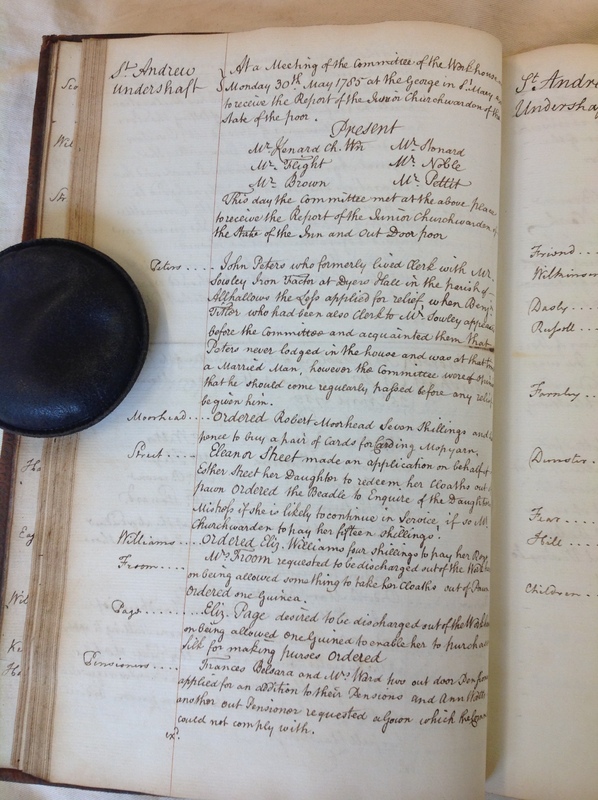 St. Andrew
Undershaft
At a Meeting of the Committee of the Workhouse
Monday 30th May 1785 at the George in St. Mary
to receive the Report of the Junior Churchwarden of the
State of the poor.
Present
Mr. Kenard Ch. Wn Mr. Stonard
Mr. Flight Mr. Noble
Mr. Brown Mr. Pettit
This day the Committee met at the above place
to receive the Report of the Junior Churchwarden of
the State of the Inn and Out Door poor
Peters .... John Peters who formerly lived Clerk with Mr.
Sowley Iron Factor at Dyers Hall in the parish of
Allhallows the Less applied for relief when Benj.
Titler who had been also Clerk to Mr. Sowley
before the Committee and acquainted them that
Peters never lodged in the house and was at that
a Married Man, however the Committee were of
that he should come regularly passed before any
be given him.
Moorhead .... Ordered Robert Moorhead Seven Shillings and
pence to buy a pair of Cards for Carding Mopyarn.
Street .... Eleanor Street made an application on behalf of
Esther Street her Daughter to redeem her Cloaths out
pawn Ordered the Beadle to Enquire of the
Mistress if she is likely to continue in Service, if so Mr.
Churchwarden to pay her fifteen Shillings.
Williams .... Ordered Eliz. Williams four shillings to pay her
Froom .... Mrs. Froom requested to be discharged out of the
on being allowed something to take her Cloaths out of
Ordered one Guinea.
Page .... Eliz. Page desired to be discharged out of the
on being allowed One Guinea to enable her to
Silk for making purses Ordered
Pensioners .... Frances Belsara and Mrs. Ward two out door
applied for an addition to their Pensions and Ann
another out Pensioner requested a Gown which the
could not comply with.
St. Andre
Undersha
Friend
Wilkinson
Dasby
Russell
Farmley
Dunster
Fear
Hill
Children